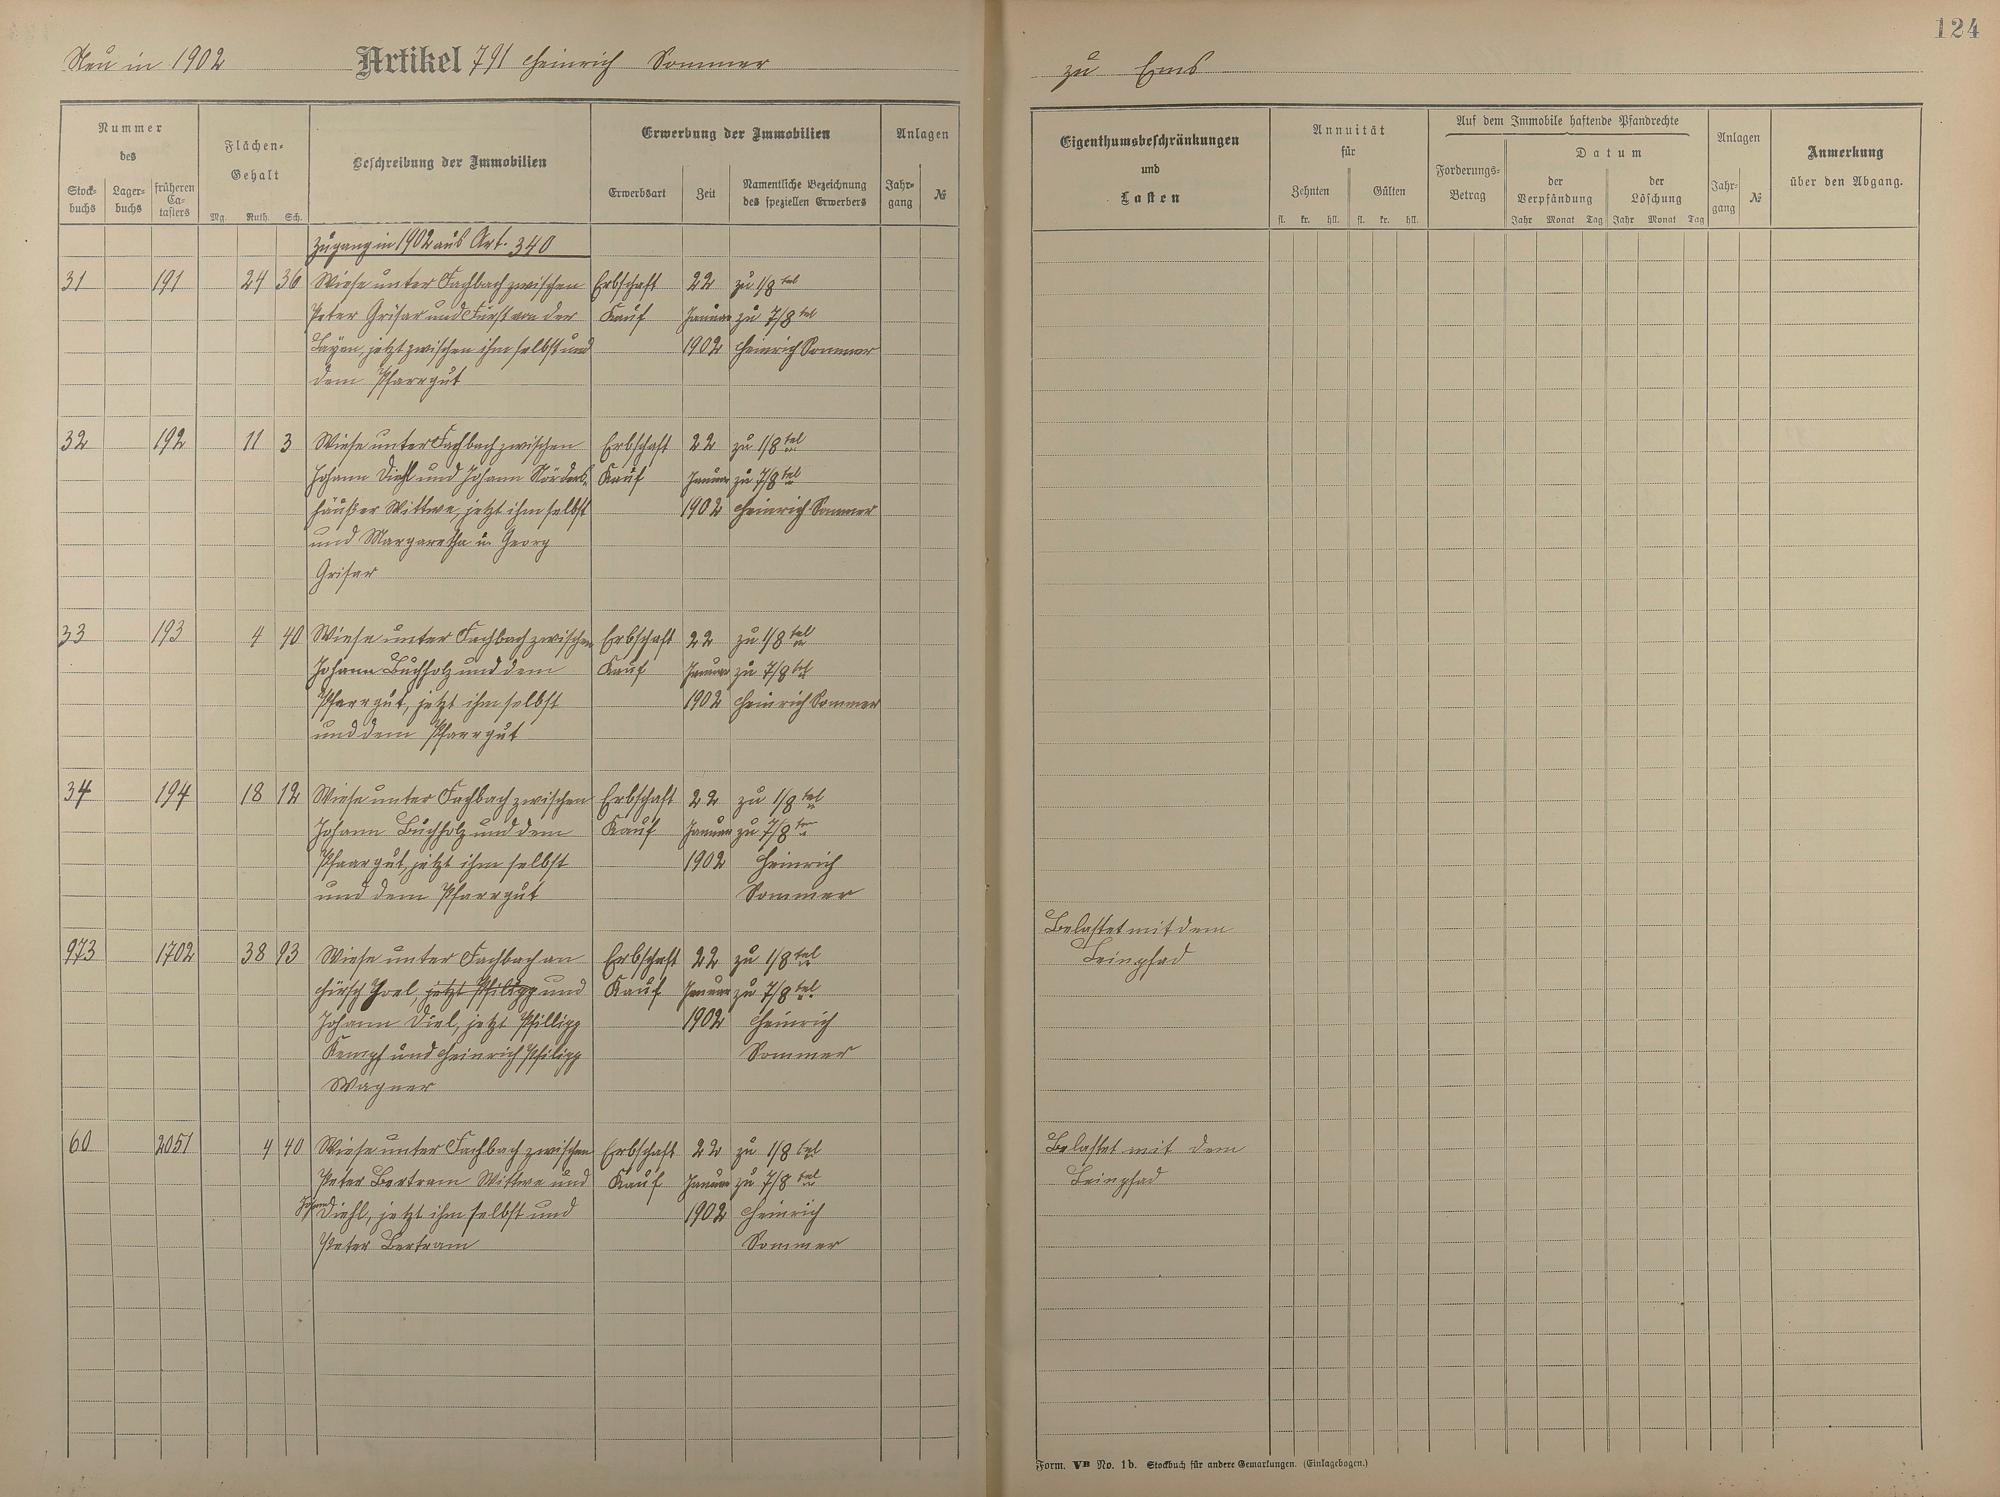 Neu in 1902 Artikel 791 Heinrich Sommer
Nummer
des
Stock-
buchs
Lager-
buchs
früheren
Ca-
tasters
Flächen-
Gehalt
Mg. Ruth. Sch.
Beschreibung der Immobilien
Erwerbung der Immobilien
Erwerbsart
Zeit
Namentliche Bezeichnung
des speziellen Erwerbers
Anlagen
Jahr-
gang
№
Zugang in 1902 aus Art. 340
31 191 24 36 Wiese unter Fachbach zwischen Erbschaft 22 zu 1/8 tel
Peter Grisar und Fürst von der Kauf Januar zu 7/8 tel
Layen, jetzt zwischen ihm selbst und 1902 Heinrich Sommer
dem Pfarrgut
32 192 11 3 Wiese unter Fachbach zwischen Erbschaft 22 zu 1/8 tel
Johann Diehl und Johann Nörders- Kauf Januar zu 7/8 tel
häußer Wittwe, jetzt ihm selbst 1902 Heinrich Sommer
und Margaretha u. Georg
Grisar
33 193 4 40 Wiese unter Fachbach zwischen Erbschaft 22 zu 1/8 tel
Johann Buchholz und dem Kauf Januar zu 7/8 tel
Pfarrgut, jetzt ihm selbst 1902 Heinrich Sommer
und dem Pfarrgut
34 194 18 12 Wiese unter Fachbach zwischen Erbschaft 22 zu 1/8 tel
Johann Buchholz und dem Kauf Januar zu 7/8 tel
Pfaargut, jetzt ihm selbst 1902 Heinrich
und dem Pfarrgut Sommer
973 1702 38 93 Wiese unter Fachbach an Erbschaft 22 zu 1/8 tel
Hirsch Joel, jetzt Philipp und Kauf Januar zu 7/8 tel
Johann Diel, jetzt Phillipp 1902 Heinrich
Kempf und Heinrich Philipp Sommer
Wagner
60 2051 4 40 Wiese unter Fachbach zwischen Erbschaft 22 zu 1/8 tel
Peter Bertram Wittwe und Kauf Januar zu 7/8 tel
Johann Diehl, jetzt ihm selbst und 1902 Heinrich
Peter Bertram Sommer
124
zu Ems
Eigenthumsbeschränkungen
und
Lasten
Annuität
für
Zehnten
Gülten
fl. kr. hll. fl. kr. hll.
Auf dem Immobile haftende Pfandrechte
Forderungs-
Betrag
Datum
der
Verpfändung
der
Löschung
Jahr Monat Tag Jahr Monat Tag
Anlagen
Jahr-
gang
№
Anmerkung
über den Abgang.
Belastet mit dem
Leinpfad
Belastet mit dem
Leinpfad
Form. VB No. 1b. Stockbuch für andere Gemarkungen. (Einlagebogen.)